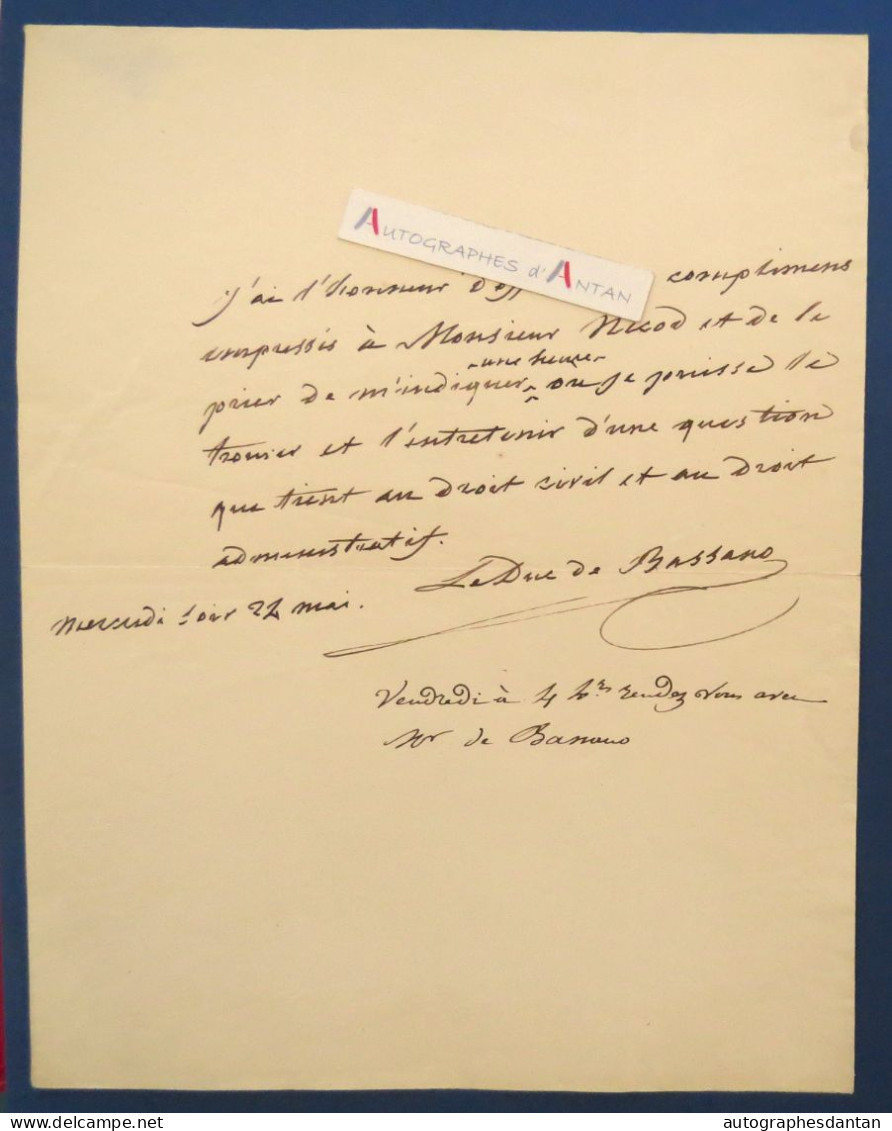 AUTOGRAPHES d'ANTAN
j'ai l'honneur d'off complimens
empressés à Monsieur Nicod et de le
prier de m'indiquer une heure où je puisse le
trouver et l'entretenir d'une question
qui tient au droit civil et au droit
administratif.
Le Duc de Bassano
mercredi soir 22 mai.
Vendredi à 4 h.res rendez vous avec
Mr de Bassano
delcampe.net
autographesdantan